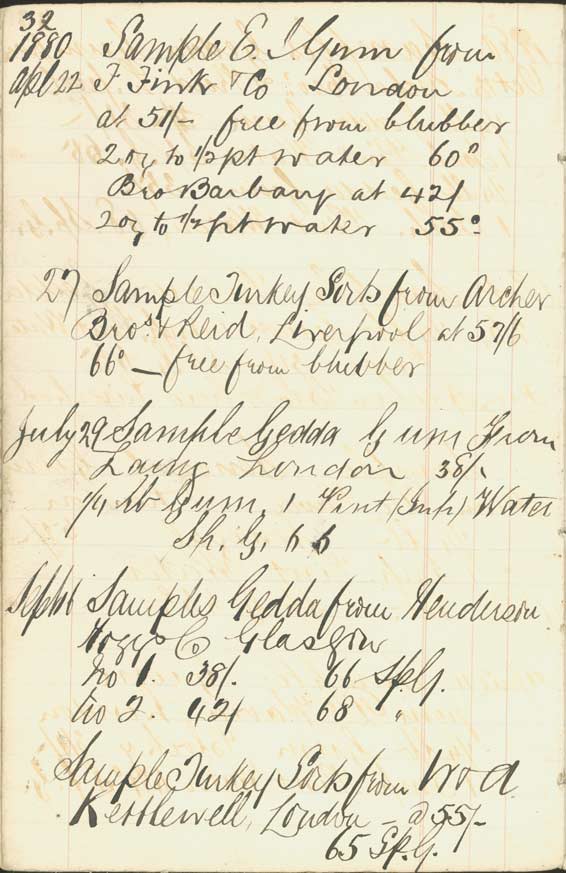 32
1880 Sample E. I Gum from
Apl 22 F Fink & Co London
at 51/- free from blubber
2 oz to 1/2 pt water 60°
Bro Barbary at 42/
2 oz to 1/2 pt water 55°
27 Sample Turkey Sorts from Archer
Bros & Reid, Liverpool at 57/6
66° — free from blubber
July 29 Sample Gedda Gum From
Laing London 38/-
1/4 lb Gum, 1 Pint (Imp) Water
Sp. G. 66
Sept 16 Samples Gedda from Henderson
Hogg & Co Glasgow
No 1. 38/. 66 Sp.G.
No 2. 42/ 68 "
Sample Turkey Sorts from
Kettlewell, London — @ 55/-
65 Sp. G.